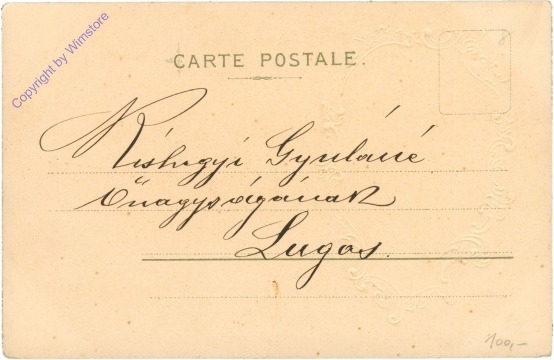 Copyright by Wimstore
CARTE POSTALE.
Kishegyi Gyuláné
Őnagyságának
Lugos.
100,–